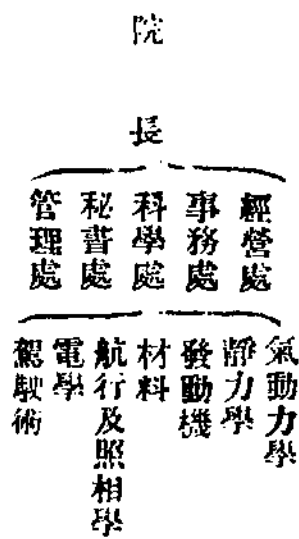 院長
經營處
事務處
科學處
秘書處
管理處
氣動力學
靜力學
發動機
材料
航行及照相學
電學
駕駛術